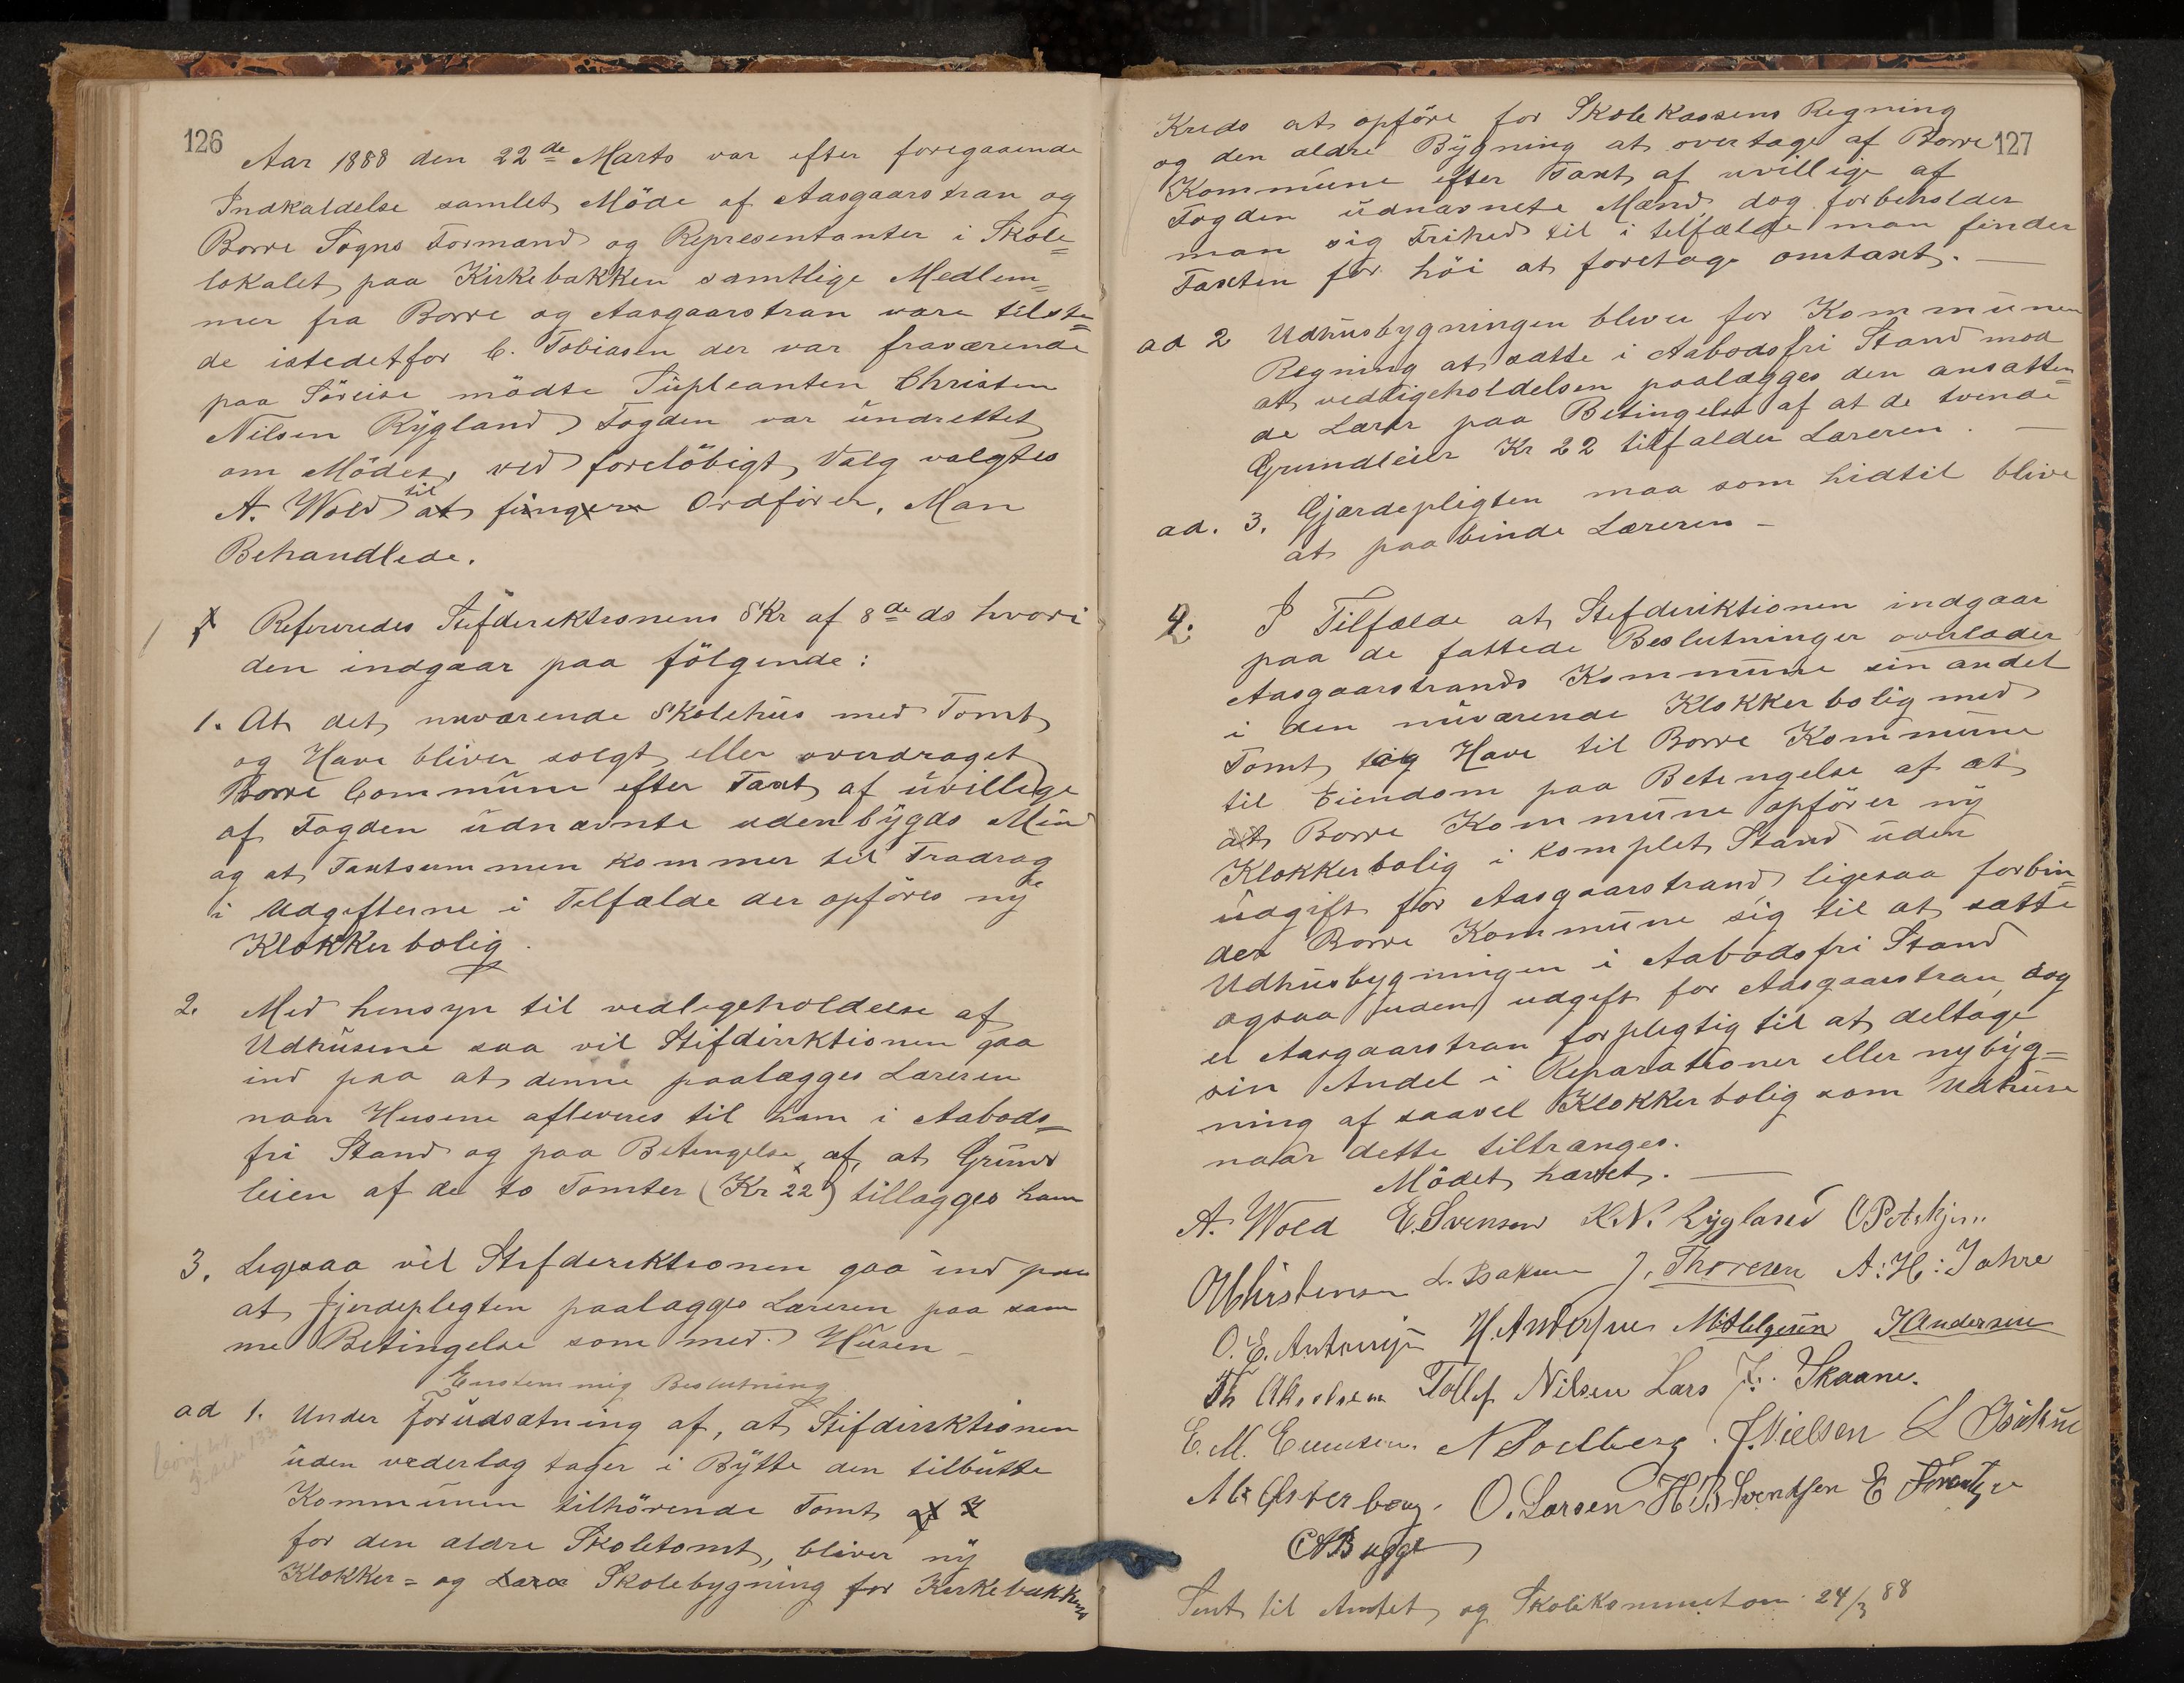 126
Aar 1888 den 22de Marts var efter foregaaende
Indkaldelse samlet Möde af Aasgaarstran og
Borre Sogns Formænd og Representanter i Skole=
lokalet paa Kirkebakken samtlige Medlem=
mer fra Borre og Aasgaarstran vare tilste=
de istedetfor C. Tobiasen der var fraværende
paa Söreise mödte Supleanten Christen
Nilsen Rygland Fogden var undrettet
om Mödet, ved forelöbigt Valg valgtes
A. Wold til at fungere Ordförer. Man
Behandlede.
Refereredes Stifderektionens Skr af 8de ds hvori
den indgaar paa fölgende:
1. At det nuværende Skolehus med Tomt
og Have bliver solgt eller overdraget
Borre Commune efter Taxt af uvillige
af Fogden udnævnte udenbygds Mæn
og at Taxtsummen kommer til Fradrag
i Udgifterne i Tilfælde der opföres ny
Klokkerbolig.
2. Med hensyn til vedligeholdelse af
Udhusene saa vil Stifdirektionen gaa
ind paa at denne paalægges Læreren
naar Husene afleveres til ham i Aabods=
fri Stand og paa Betingelse af, at Grund
leien af de to Tomter (Kr 22) tillægges ham
3. Ligesaa vil Stifderektionen gaa ind paa
at Gjerdepligten paalægges Læreren paa sam
me Betingelse som med Husen –
Enstemmig Beslutning
ad 1. Under Forudsætning af, at Stifdirektionen
uden vederlag tager i Bytte den tilbudte
Kommunen tilhörende Tomt
for den ældre Skoletomt, bliver ny
Klokker= og Skolebygning for Kirkebakkens
127
Kreds at opföre for Skolekassens Regning
og den ældre Bygning at overtage af Borre
Kommune efter Taxt af uvillige af
Fogden udnævnete Mænd, dog forbeholder
man sig Frihed til i tilfælde man finder
Taxten for höi at foretage omtaxt. —
ad 2 Udhusbygningen bliver for Kommunen
Regning at sætte i Aabodsfri Stand mod
at vedligeholdelsen paalægges den ansatten=
de Lærer paa Betingelse af at de tvende
Grundleier Kr 22 tilfalder Læreren. —
ad. 3. Gjærdepligten maa som hidtil blive
at paabinde Læreren –
4. I Tilfælde at Stifderiktionen indgaar
paa de fattede Beslutninger overlader
Aasgaarstrands Kommune sin andel
i den nuværende Klokkerbolig med
Tomt og Have til Borre Kommune
til Eiendom paa Betingelse af at
at Borre Kommune opförer ny
Klokkerbolig i komplet Stand uden
udgift for Aasgaarstrand ligesaa forbin=
der Borre Kommune sig til at sætte
Udhusbygningen i Aabodsfri Stand
ogsaa uden udgift for Aasgaarstran, dog
er Aasgaarstran forpligtig til at deltage
sin Andel i Reparationer eller nybyg=
ning af saavel Klokkerbolig som Udhuse
naar dette tiltrænges.
Mödet hævet. —
A. Wold E. Svensen K. N. Rygland
Christensen L. J. Thoresen A: H: Jahre
O. E. H. M. Helgesen J Andersen
Th Tollef Nilsen Lars J. Skaane.
E. M. N Solberg. J. Nielsen L
M: Østerberg. O. Larsen H B Svendsen E
C A Bugge
Sent til Amtet og Skolekommisionen 24/3 88